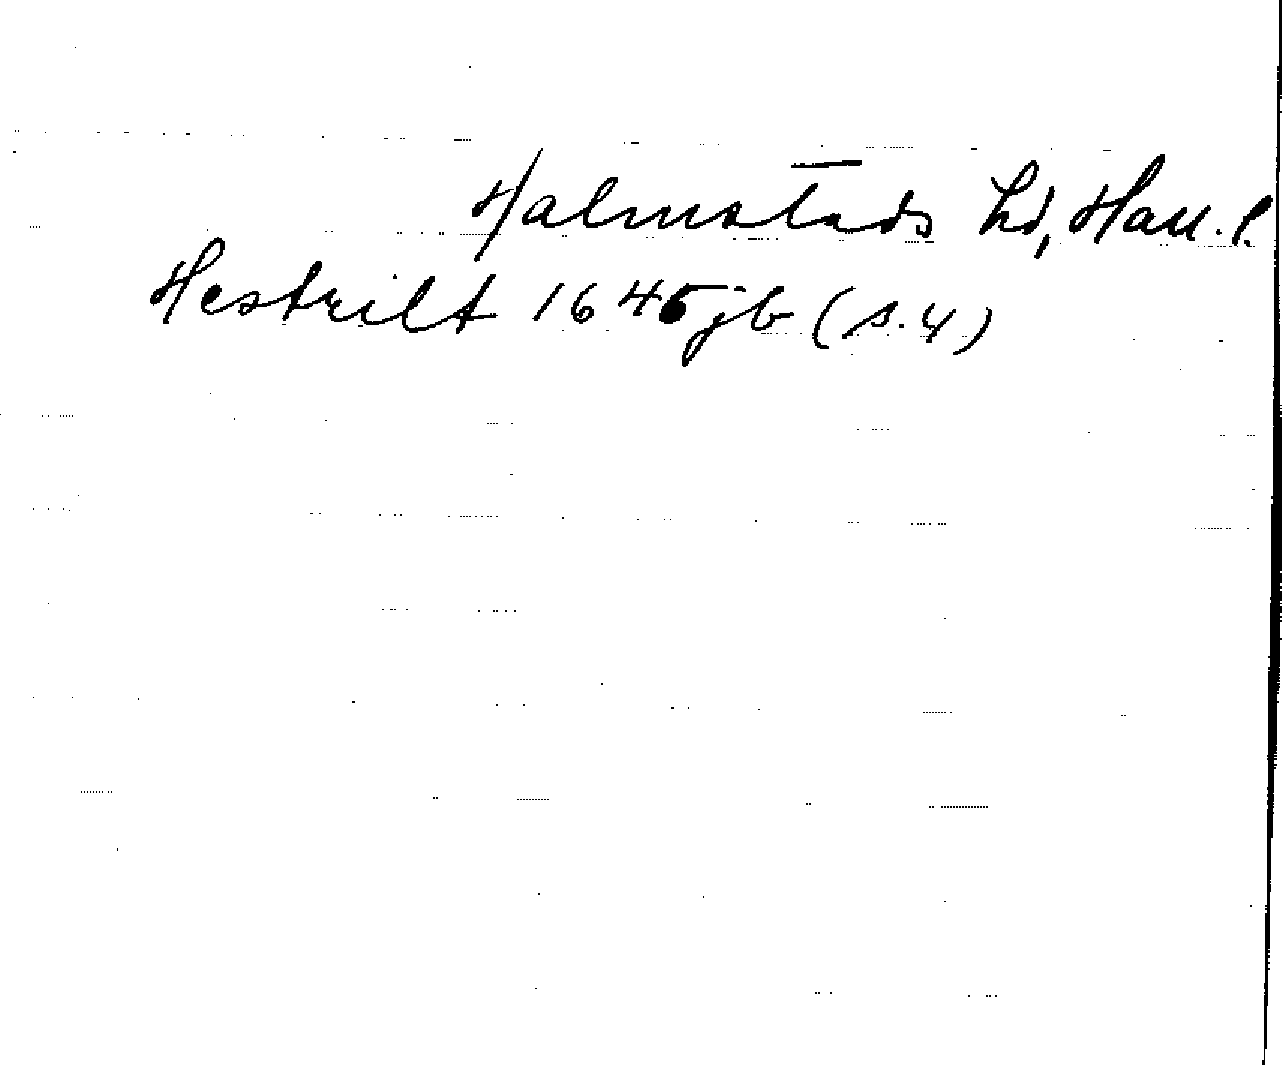 Halmstads hd, Hall. l.
Hestrilt 1645 jb (s. 4)